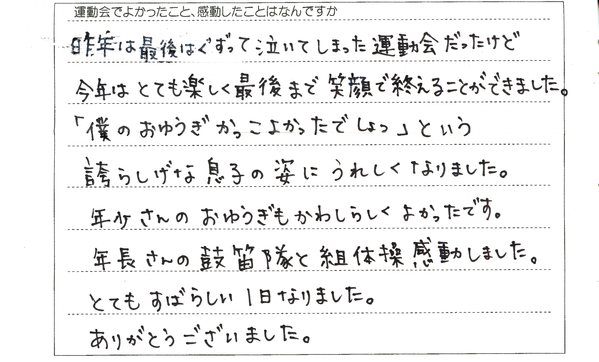 運動会でよかったこと、感動したことはなんですか
昨年は最後はぐずって泣いてしまった運動会だったけど
今年はとても楽しく最後まで笑顔で終えることができました。
「僕のおゆうぎかっこよかったでしょっ」という
誇らしげな息子の姿にうれしくなりました。
年少さんのおゆうぎもかわしらしくよかったです。
年長さんの鼓笛隊と組体操感動しました。
とてもすばらしい1日なりました。
ありがとうございました。